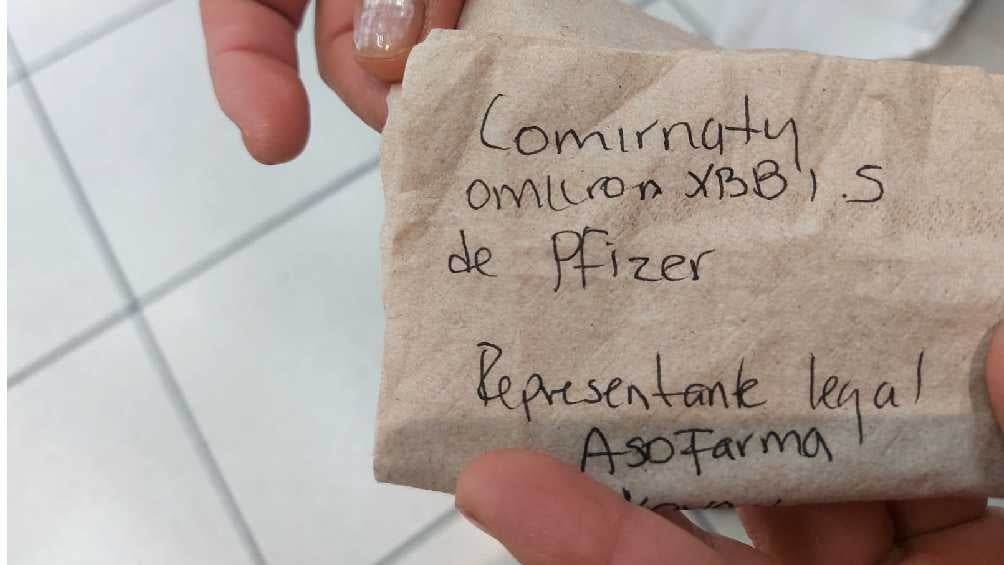 Comirnaty
omicron XBB 1.5
de Pfizer
Representante legal
Asofarma